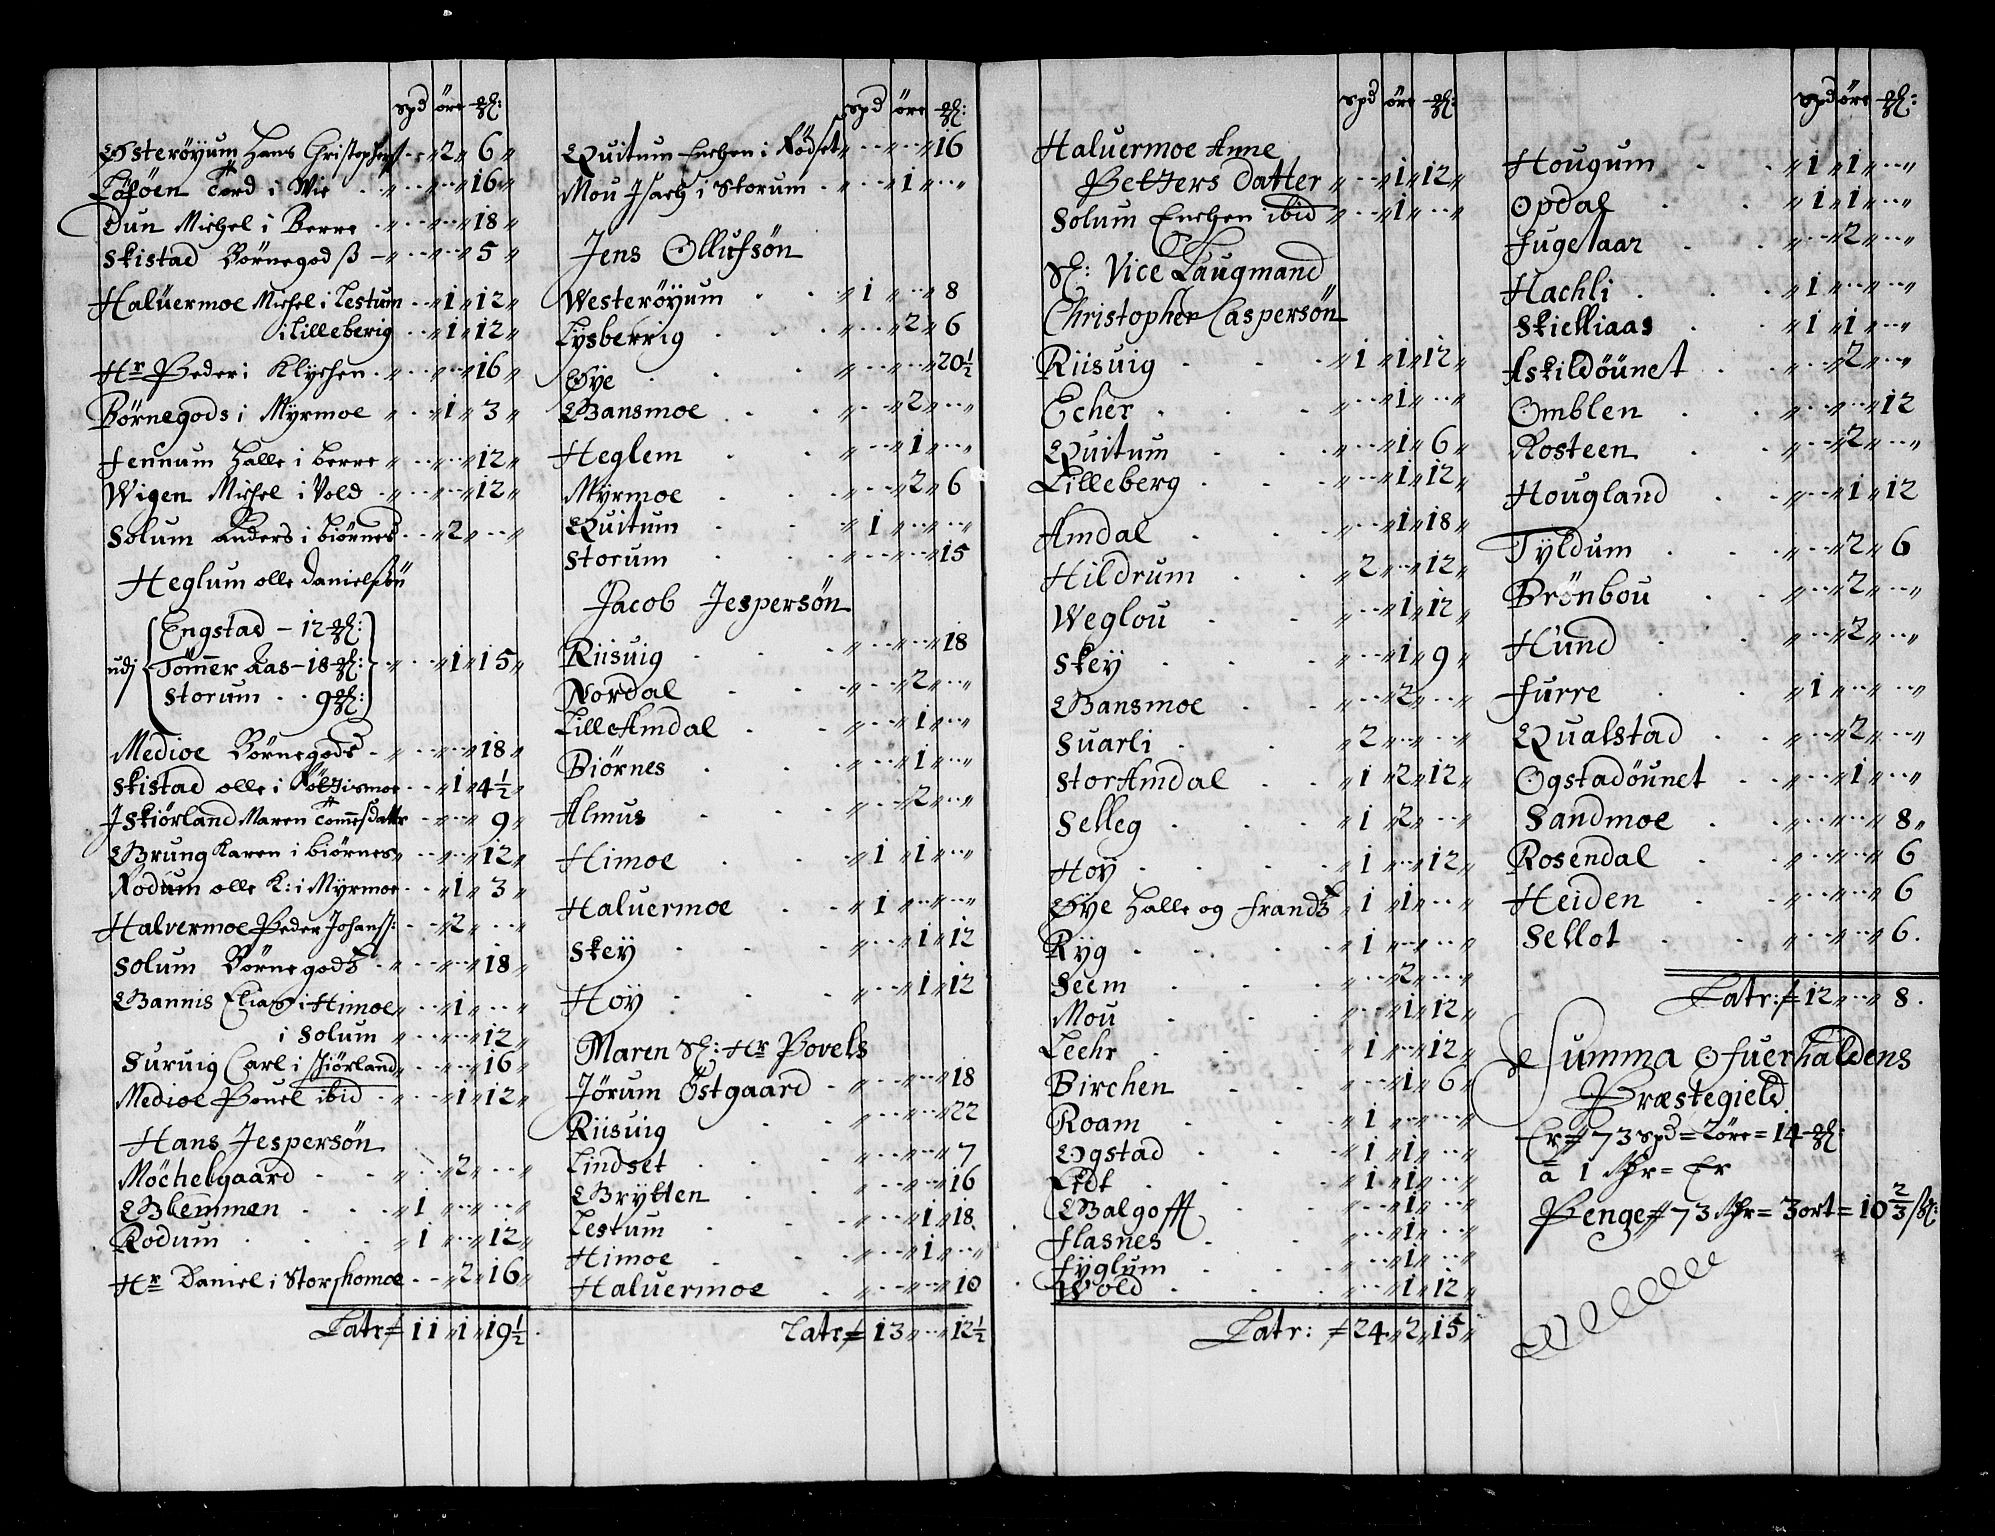 spd öre ꝳl:
Österöyum Hans Christophers „ 2 „ 6 „
Löföen Tord i Vie „ „ 16 „
Dun Michel i Berre „ „ 18 „
Skistad Börnegodß „ „ 5 „
Haluermoe Michel i Lestum „ 1 „ 12 „
i Lilleberig „ 1 „ 12 „
Hr Peder i Klychen „ „ 16 „
Börnegods i Myrmoe „ 1 „ 3 „
Fennum Halle i Berre „ „ 12 „
Wigen Michel i Vold „ „ 12 „
Solum Anders i Biörnes „ 2 „ „
Heglum olle Danielsön
udj Engstad – 12 ꝳl:
Tömmer Aas – 18 ꝳl: „ 1 „ 15 „
Storum 9 ꝳl:
Medioe Börnegods „ „ 18 „
Skistad olle i „ 1 „ 4½ „
J Skiörland Maren Tommesdatr „ „ 9 „
Brung Karen i Biörnes „ „ 12 „
Rodum olle K: i Myrmoe „ 1 „ 3 „
Halvermoe Peder Johanss: „ 2 „ „
Solum Börnegods „ „ 18 „
Bannis Elias i Himoe „ 1 „ „
i Solum „ „ 12 „
Suruig Carl i Skiörland „ „ 16 „
Medioe Pouel ibid „ 1 „ 12 „
Hans Jespersön
Möchelgaard „ 2 „ „
Blemmen „ 1 „ „ „
Rodum „ 1 „ „ 12 „
Hr Daniel i Storshomoe „ 2 „ 16 „
Latr = 11 „ 1 „ 19½
spd öre ꝳl:
Quitum Enchen i Rödset „ „ 16
Mou Isach i Storum „ 1 „ „
Jens Ollufsön
Westeröyum „ 1 „ „ 8
Lysberrig „ 2 „ 6
Öye „ „ 20½
Bansmoe „ 2 „ „
Heglem „ 1 „ „
Myrmoe „ 2 „ 6
Quitum „ 1 „ „ „
Storum „ „ 15
Jacob Jespersön
Riisuig „ „ 18
Nordal „ 2 „ „
Lille Amdal „ 1 „ „
Biörnes „ 1 „ „
Almus „ 2 „ „
Himoe „ 1 „ 1 „ „
Haluermoe „ 1 „ „ „
Skey „ 1 „ 12
Höy „ 1 „ 12
Maren Sl: Hr Povels
Jörum Östgaard „ „ 18
Riisuig „ „ 22
Lindset „ „ 7
Brytten „ „ 16
Lestum „ 1 „ 18
Himoe „ 1 „ „
Haluermoe „ „ 10
Latr = 13 „ „ 12½
spd öre ꝳl:
Haluermoe Anne
Petters Datter „ 1 „ 12 „
Solum Enchen ibid „ 1 „ „
Sl: Vice Laugmand
Christopher Caspersön
Riisuig „ 1 „ 1 „ 12 „
Echer „ 1 „ „
Quitum „ 1 „ 6 „
Lilleberg „ 1 „ 12 „
Amdal „ 1 „ 18 „
Hildrum „ 2 „ „ 12 „
Weglou „ 1 „ 12 „
Skey „ 1 „ 9 „
Bansmoe „ 2 „ „
Suarli „ 2 „ „ „
Stor Amdal „ 1 „ 2 „ 12 „
Selleg „ 1 „ 2 „ „
Höy „ 1 „ „ 12 „
Öye Halle og Frands „ 1 „ 1 „ „
Ryg „ 1 „ „ „
Seem „ 2 „ „
Mou „ 1 „ 12 „
Leehr „ 1 „ „ 12 „
Birchen „ 1 „ 6 „
Roam „ 1 „ „ „
Ogstad „ 1 „ 1 „ „
„ 1 „ 1 „ „
Balgoff „ 1 „ „
Flasnes „ 1 „ „
Fyglum „ 1 „ „
Wold „ 1 „ 12 „
Latr: = 24 „ 2 „ 15 „
spd öre ꝳl:
Hougum „ 1 „ 1 „ „
Opdal „ 1 „ 1 „ „
Fugelaar „ 2 „ „
Hachli „ 1 „ „ „
Skielliaas „ 1 „ 1 „ „
Askildöunet „ 2 „ „
Omblen „ „ 12
Rosteen „ 2 „ „
Hougland „ 1 „ 12
Tyldum „ 2 „ 6
Brönbou „ 2 „ „
Hund „ 2 „ „
Furre „ 1 „ „ „
Qualstad „ 2 „ „
Ogstadöunet „ 1 „ „
Sandmoe „ „ 8 „
Rosendal „ „ 6
Heiden „ „ 6
Sellot „ „ 6.
Latr: = 12 „ „ 8.
Summa Ofuerhaldens
Præstegield
Er = 73 spd = 2 öre = 14 ꝳl:
à 1 Rdr = Er
Penge = 73 Rdr = 3 ort = 10 2/3 sk: